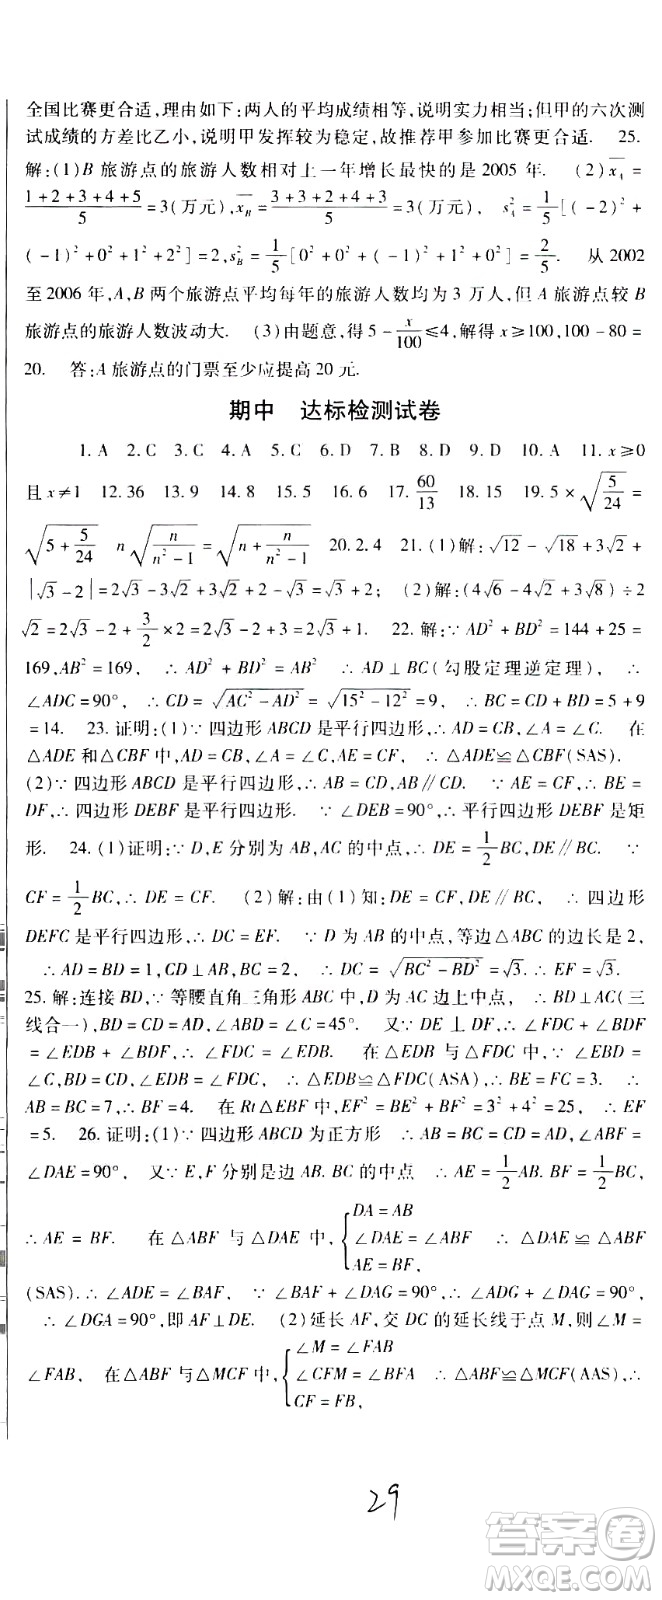 全国比赛更合适,理由如下:两人的平均成绩相等,说明实力相当;但甲的六次测
试成绩的方差比乙小,说明甲发挥较为稳定,故推荐甲参加比赛更合适. 25.
解:(1)B 旅游点的旅游人数相对上一年增长最快的是 2005 年. (2)$\overline{x_A}$ =
$\frac{1+2+3+4+5}{5}$=3(万元),$\overline{x_B}$=$\frac{3+3+2+4+3}{5}$=3(万元), $s_A^2$=$\frac{1}{5}$[(-2)²+
(-1)²+0²+1²+2²]=2,$s_B^2$=$\frac{1}{5}$[0²+0²+(-1)²+1²+0²]=$\frac{2}{5}$. 从 2002
至 2006 年,A,B 两个旅游点平均每年的旅游人数均为 3 万人,但 A 旅游点较 B
旅游点的旅游人数波动大. (3)由题意,得 5-$\frac{x}{100}$≤4,解得 x≥100,100-80=
20. 答:A 旅游点的门票至少应提高 20 元.
期中 达标检测试卷
1. A 2. C 3. C 4. A 5. C 6. D 7. B 8. D 9. D 10. A 11. x≥0
且 x≠1 12. 36 13. 9 14. 8 15. 5 16. 12 17. $\frac{60}{13}$ 18. 15 19. 5×$\sqrt{\frac{5}{24}}$=
$\sqrt{5+\frac{5}{24}}$ n$\sqrt{\frac{n}{n²-1}}$=$\sqrt{n+\frac{n}{n²-1}}$ 20. 2. 4 21. (1)解:√12-√18+3√2+
|√3-2|=2√3-3√2+3√2+2-√3=√3+2; (2)解:(4√6-4√2+3√8)÷2
√2=2√3-2+$\frac{3}{2}$×2=2√3-2+3=2√3+1. 22. 解:∵AD²+BD²=144+25=
169,AB²=169, ∴AD²+BD²=AB² ∴AD⊥BC(勾股定理逆定理), ∴
∠ADC=90°, ∴CD=$\sqrt{AC²-AD²}$=$\sqrt{15²-12²}$=9, ∴BC=CD+BD=5+9
=14. 23. 证明:(1)∵四边形 ABCD 是平行四边形,∴AD=CB,∠A=∠C. 在
△ADE 和△CBF 中,AD=CB,∠A=∠C,AE=CF. ∴△ADE≌△CBF(SAS).
(2)∵四边形 ABCD 是平行四边形,∴AB=CD,AB∥CD. ∵AE=CF,∴BE=
DF,∴四边形 DEBF 是平行四边形. ∵∠DEB=90°,∴平行四边形 DEBF 是矩
形. 24. (1)证明:∵D,E 分别为 AB,AC 的中点,∴DE=$\frac{1}{2}$BC,DE∥BC. ∵
CF=$\frac{1}{2}$BC,∴DE=CF. (2)解:由(1)知:DE=CF,DE∥BC, ∴四边形
DEFC 是平行四边形,∴DC=EF. ∵D 为 AB 的中点,等边△ABC 的边长是 2,
∴AD=BD=1,CD⊥AB,BC=2, ∴DC=$\sqrt{BC²-BD²}$=√3. ∴EF=√3.
25. 解:连接 BD,∵等腰直角三角形 ABC 中,D 为 AC 边上中点, ∴BD⊥AC(三
线合一),BD=CD=AD,∠ABD=∠C=45°. 又∵DE⊥DF,∴∠FDC+∠BDF
=∠EDB+∠BDF, ∴∠FDC=∠EDB. 在△EDB 与△FDC 中,∵∠EBD=
∠C,BD=CD,∠EDB=∠FDC, ∴△EDB≌△FDC(ASA),∴BE=FC=3. ∴
AB=BC=7,∴BF=4. 在 Rt△EBF 中,EF²=BE²+BF²=3²+4²=25, ∴EF
=5. 26. 证明:(1)∵四边形 ABCD 为正方形 ∴AB=BC=CD=AD,∠ABE=
∠DAE=90°, 又∵E,F 分别是边 AB. BC 的中点 ∴AE=$\frac{1}{2}$AB. BF=$\frac{1}{2}$BC,
∴AE=BF. 在△ABF 与△DAE 中,{DA=AB ∠DAE=∠ABF AE=BF, ∴△DAE≌△ABF
(SAS). ∴∠ADE=∠BAF, ∵∠BAF+∠DAG=90°,∴∠ADG+∠DAG=90°,
∴∠DGA=90°,即 AF⊥DE. (2)延长 AF,交 DC 的延长线于点 M,则∠M=
∠FAB, 在△ABF 与△MCF 中,{∠M=∠FAB ∠CFM=∠BFA CF=FB, ∴△ABF≌△MCF(AAS),∴
29
答案圈
MXQE.COM